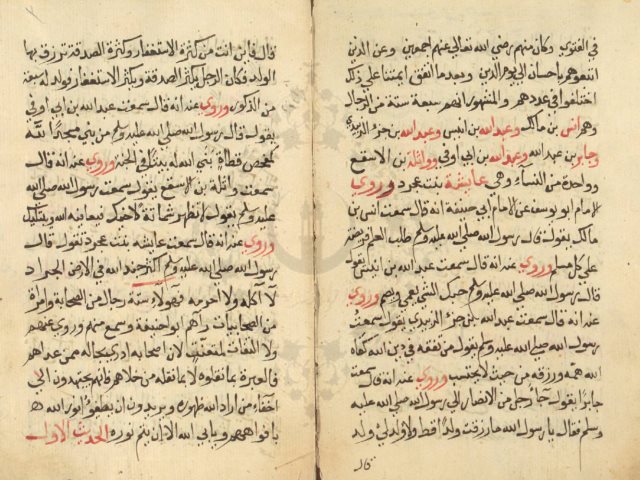 في الفتوى وكان منهم رضي الله تعالى عنهم اجمعين وعن الذين
اتبعوهم باحسان الى يوم الدين وبعدما اتفق ايمتنا على ذلك
اختلفوا في عددهم والمشهور انهم سبعة ستة من الرجال
وهم انس بن مالك وعبد الله بن انيس وعبد الله بن جزء الزبيدي
وجابر بن عبد الله وعبد الله بن ابي اوفى وواثلة بن الاسقع
وواحدة من النساء وهي عايشة بنت عجرد وروى
الامام ابو يوسف عن الامام ابي حنيفة انه قال سمعت انس بن
مالك يقول قال رسول الله صلى الله عليه وسلم طلب العلم فريضة
على كل مسلم وروي عنه انه قال سمعت عبد الله بن انيس يقول
قال رسول الله صلى الله عليه وسلم حبك الشي يعمي ويصم وروي
عنه انه قال سمعت عبد الله بن جزء الزبيدي يقول سمعت
رسول الله صلى الله عليه وسلم يقول من تفقه في دين الله كفاه
الله همه ورزقه من حيث لا يحتسب وروي عنه انه قال سمعت
جابرا يقول جا رجل من الانصار الى رسول الله صلى الله عليه
وسلم فقال يا رسول الله ما رزقت ولدا قط ولا ولد لي ولد
قال
قال فاين انت من كثرة الاستغفار وكثرة الصدقة ترزق بها
الولد فكان الرجل يكثر الصدقة ويكثر الاستغفار فولد له سبعة
من الذكور وروي عنه انه قال سمعت عبد الله بن ابي اوفى
يقول قال رسول الله صلى الله عليه وسلم من بنى مسجدا لله
كمفحص قطاة بنى الله له بيتا في الجنة وروي عنه انه قال
سمعت واثلة بن الاسقع يقول سمعت رسول الله صلى الله
عليه وسلم يقول لا تظهر شماتة لاخيك فيعافيه الله ويبتليك
وروي عنه انه قال سمعت عايشة بنت عجرد تقول قال
رسول الله صلى الله عليه وسلم اكثر جند الله في الارض الجراد
لا آكله ولا احرمه فهولاء ستة رجال من الصحابة وامراة
من الصحابيات راهم ابو حنيفة وسمع منهم وروى عنهم
ولا التفات لمتعنت لان اصحابه ادرى بحاله ممن عداهم
فالعبرة بما نقلوه لا بما نقله من خلاهم فانهم يجتهدون الى
اخفاء من اراد الله ظهوره ويريدون ان يطفئوا نور الله
بافواههم ويابى الله الا ان يتم نوره الحديث الاول